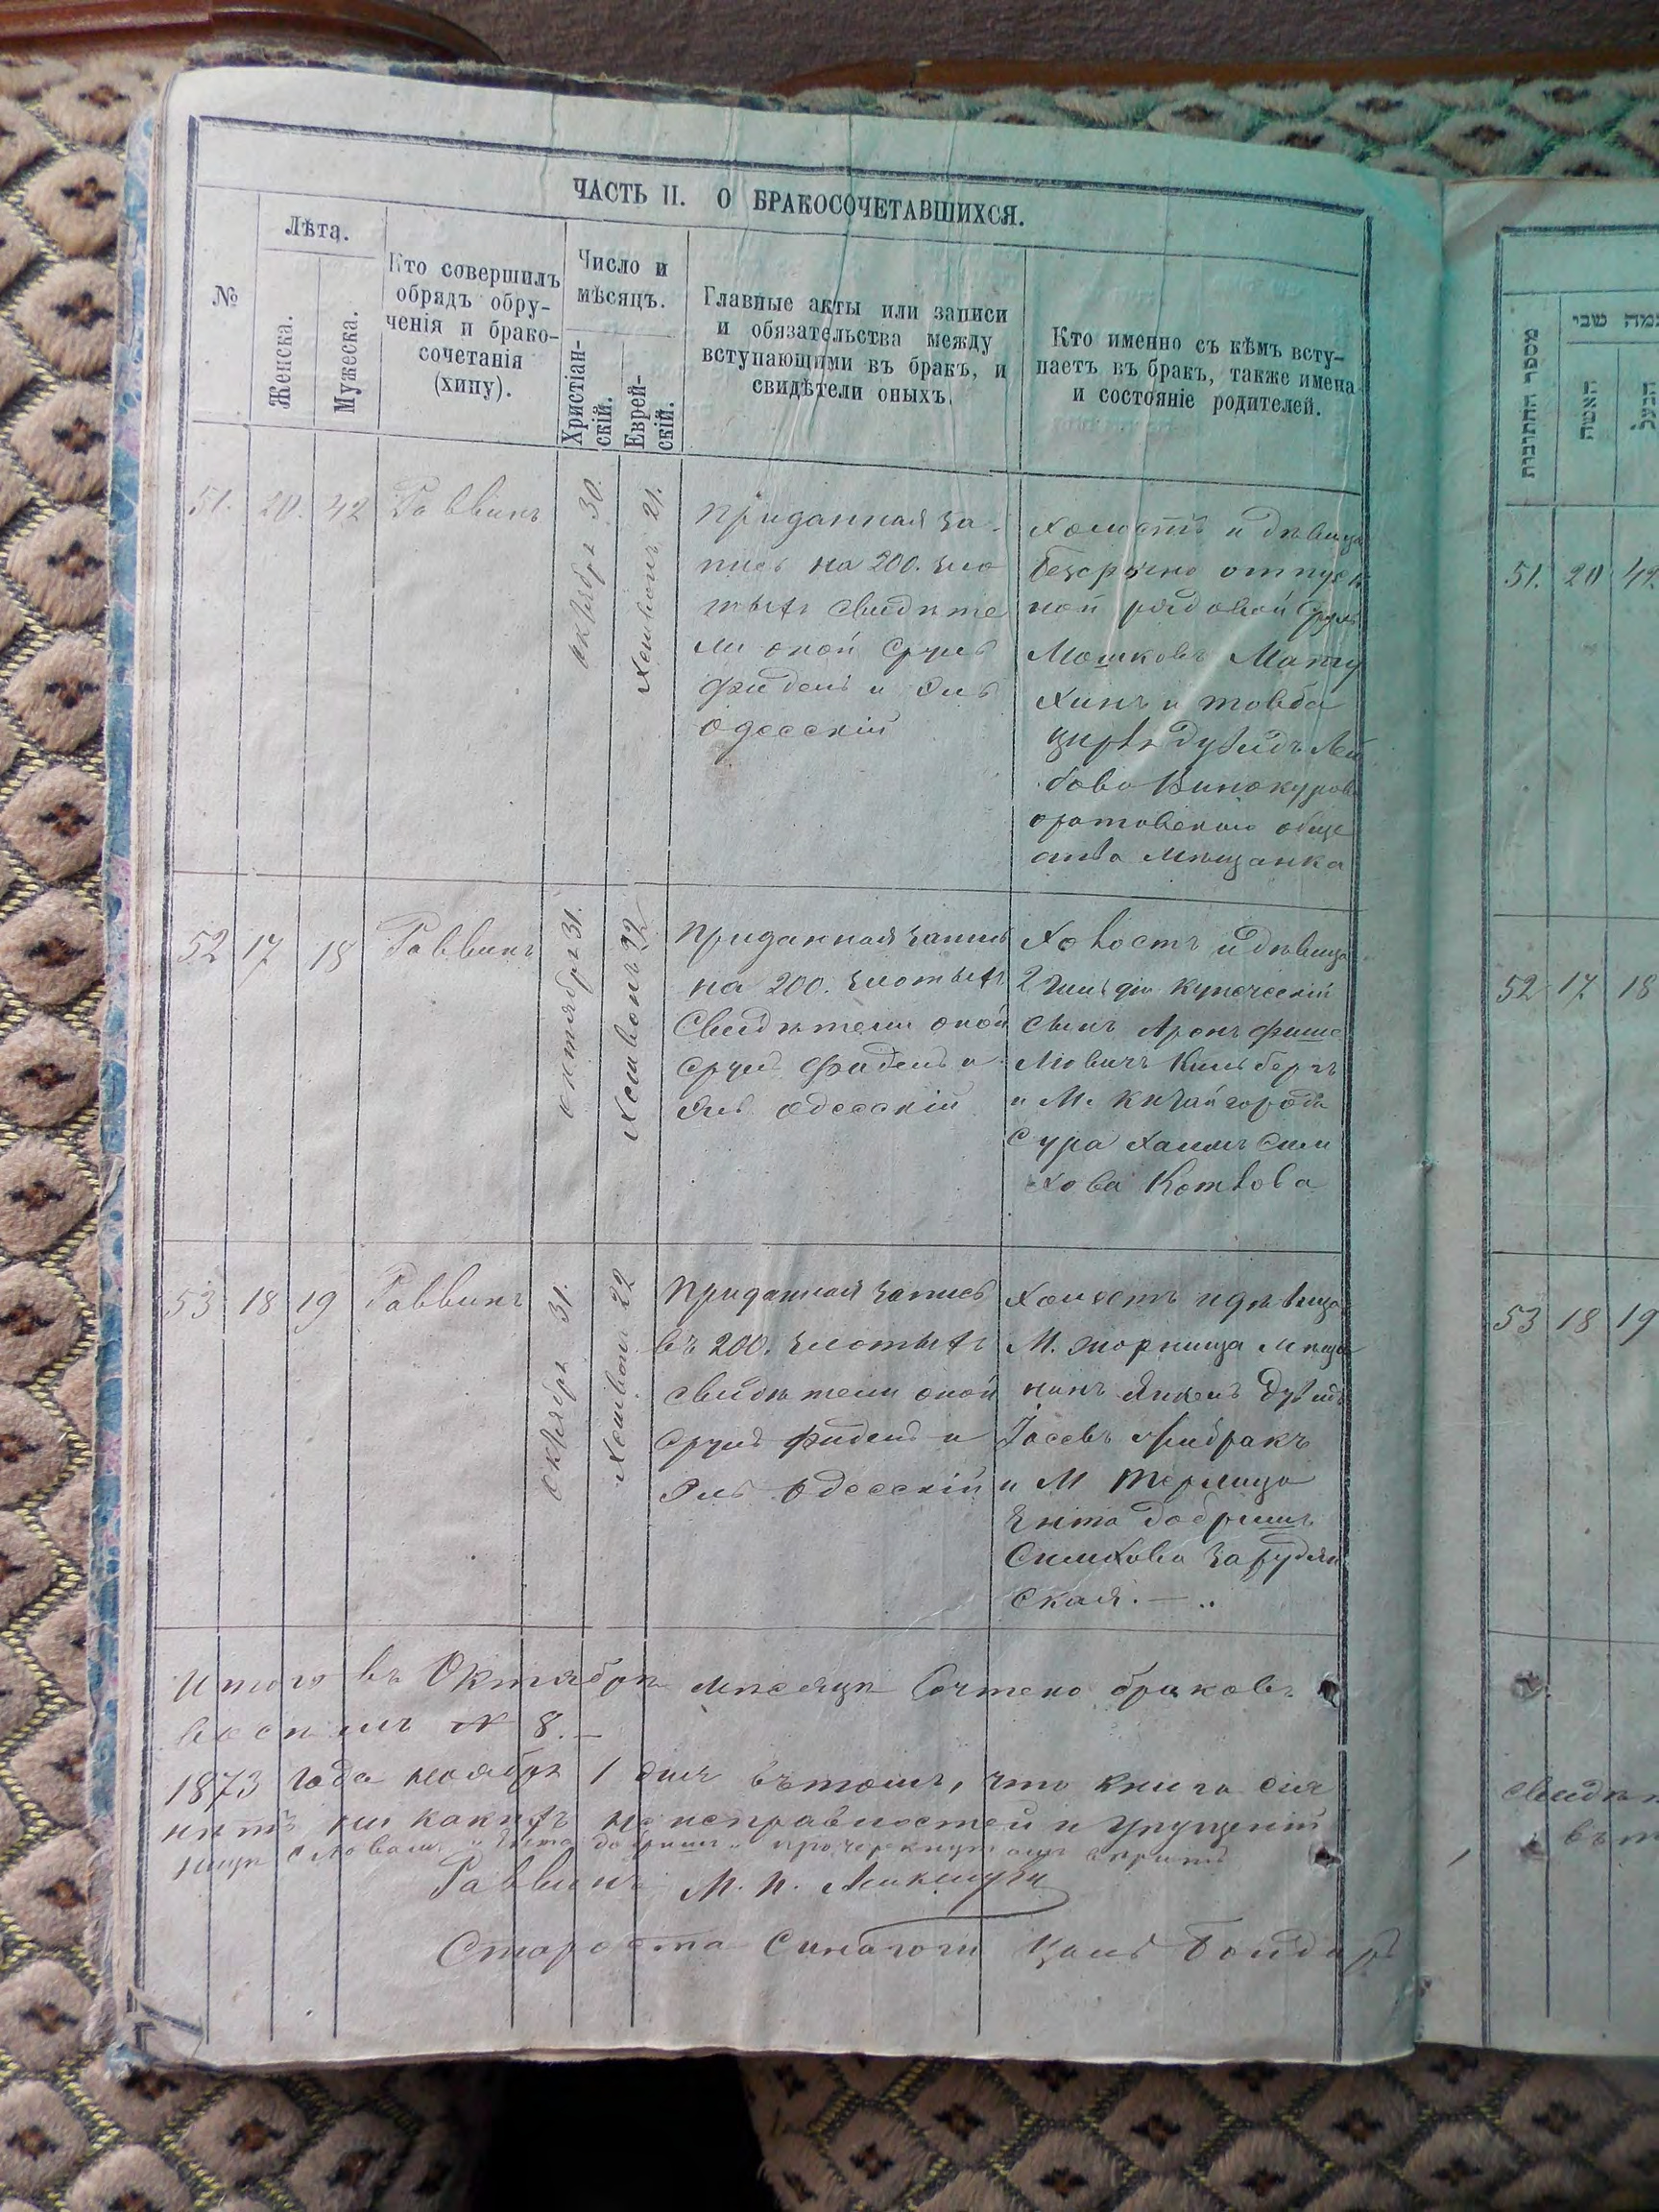 ЧАСТЬ II. О БРАКОСОЧЕТАВШИХСЯ.
№
Лѣта.
Женска.
Мужеска.
Кто совершилъ
обрядъ обру-
ченія и брако-
сочетанія
(хипу).
Число и
мѣсяцъ.
Христіан-
скій.
Еврей-
скій.
Главные акты или записи
и обязательства между
вступающими въ бракъ, и
свидѣтели оныхъ.
Кто именно съ кѣмъ всту-
паетъ въ бракъ, также имена
и состояніе родителей.
51. 20. 42 Раввинъ
октября 30.
Хешвонъ 21.
Приданная за-
пись на 200. зло
тыхъ свидѣте
ли оной Сруль
Фидель и Эль
Одесскій
Холостъ и дѣвица
безсрочно отпуск
ной рядовой Сруль
Мошковъ Мату
хинъ и товба
Цирля Дувидъ Лей
бова Винокурова
оратовского обще
ства мѣщанка
52 17 18 Раввинъ
октября 31.
Хешвонъ 22
Приданная запись
на 200. злотыхъ
Свидѣтели оной
Сруль Фидель и
Эль Одесскій
Холостъ и дѣвица
2 гильдіи купеческій
сынъ Аронъ Фише
лювичъ Кильбергъ
и М. Китайгорода
Сура Хаимъ Сим
хова Котлова
53 18 19 Раввинъ
октября 31.
Хешвон 22
Приданная запись
въ 200. злотыхъ
свидѣтели оной
Сруль Фидель и
Эль Одесскій
Холостъ и дѣвица
М. Жорнища мѣща
нинъ Янкель Дувидъ
Іосевъ
и М Терлица
Ента Добришъ
Симхова Зарудян
ская. — ..
Итого въ Октябрѣ мѣсяцѣ Сочтено браковъ
восѣмъ № 8. —
1873 года ноября 1 дня въ томъ, что книга сія
нѣтъ ни какихъ не исправностей и упущеній
Раввинъ М. П.
Староста Синагоги Цаль Бондарь
מספר החתונות
האשה
הבעל
51. 20 42
52 17 18
53 18 19